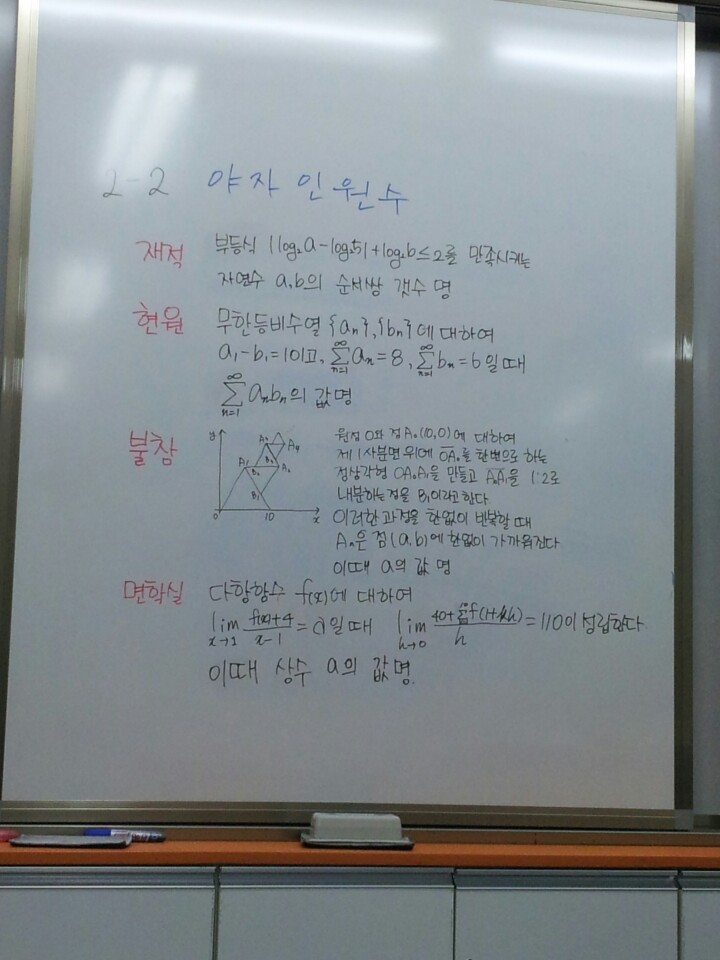 2-2 야자 인원수
재적 부등식 |log₂a-log₂5|+log₂b≤2를 만족시키는
자연수 a,b의 순서쌍 갯수 명
현원 무한등비수열 {aₙ},{bₙ}에 대하여
a₁-b₁=1이고, ∞∑n=1 aₙ=8, ∞∑n=1 bₙ=6일때
∞∑n=1 aₙbₙ의 값 명
불참 원점 O와 점 A₀(10,0)에 대하여
제1사분면위에 OA₀를 한변으로 하는
정삼각형 OA₀A₁을 만들고 A₀A₁을 1:2로
내분하는점을 B₁이라고한다
이러한 과정을 한없이 반복할 때
Aₙ은 점(a,b)에 한없이 가까워진다
이때 a의 값 명
y
A₃
A₄
A₁
B₂
A₂
B₁
0
10
x
면학실 다항함수 f(x)에 대하여
lim x→1 f(x)+4/x-1=a일때 lim h→0 40+∑f(1+kh)/h=110이 성립한다
이때 상수 a의 값 명.